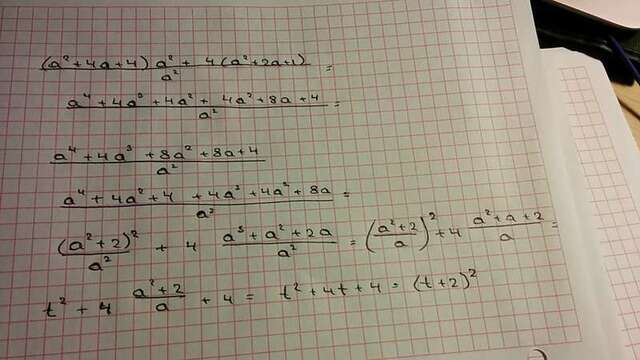 (a²+4a+4)a² + 4(a²+2a+1) / a² =
a⁴+4a³+4a²+4a²+8a+4 / a² =
a⁴+4a³+8a²+8a+4 / a²
a⁴+4a²+4+4a³+4a²+8a / a² =
(a²+2)² / a² + 4 a³+a²+2a / a² = (a²+2 / a)² + 4 a²+a+2 / a =
t² + 4 a²+2 / a + 4 = t²+4t+4 = (t+2)²